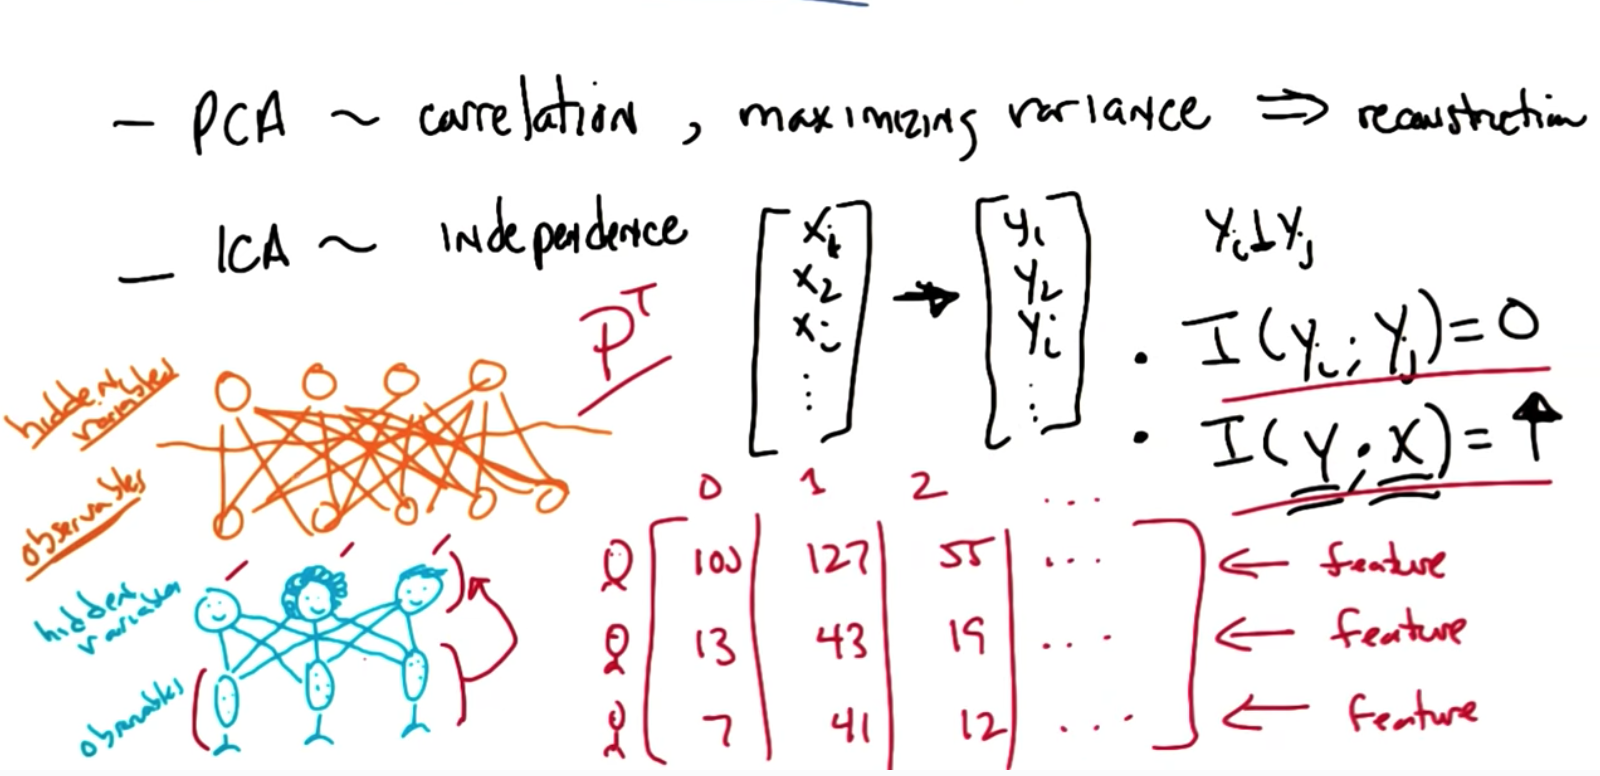 - PCA ~ correlation, maximizing variance ⇒ reconstruction
- ICA ~ independence
[x₁ x₂ xᵢ ⋮] → [y₁ y₂ yᵢ ⋮]
yᵢ⊥yⱼ
Pᵀ
• I(yᵢ; yⱼ)=0
• I(y; x)=↑
hidden variables
observables
hidden variables
observables
0 1 2 ...
103 127 55 ... ← feature
13 43 19 ... ← feature
7 41 12 ... ← feature